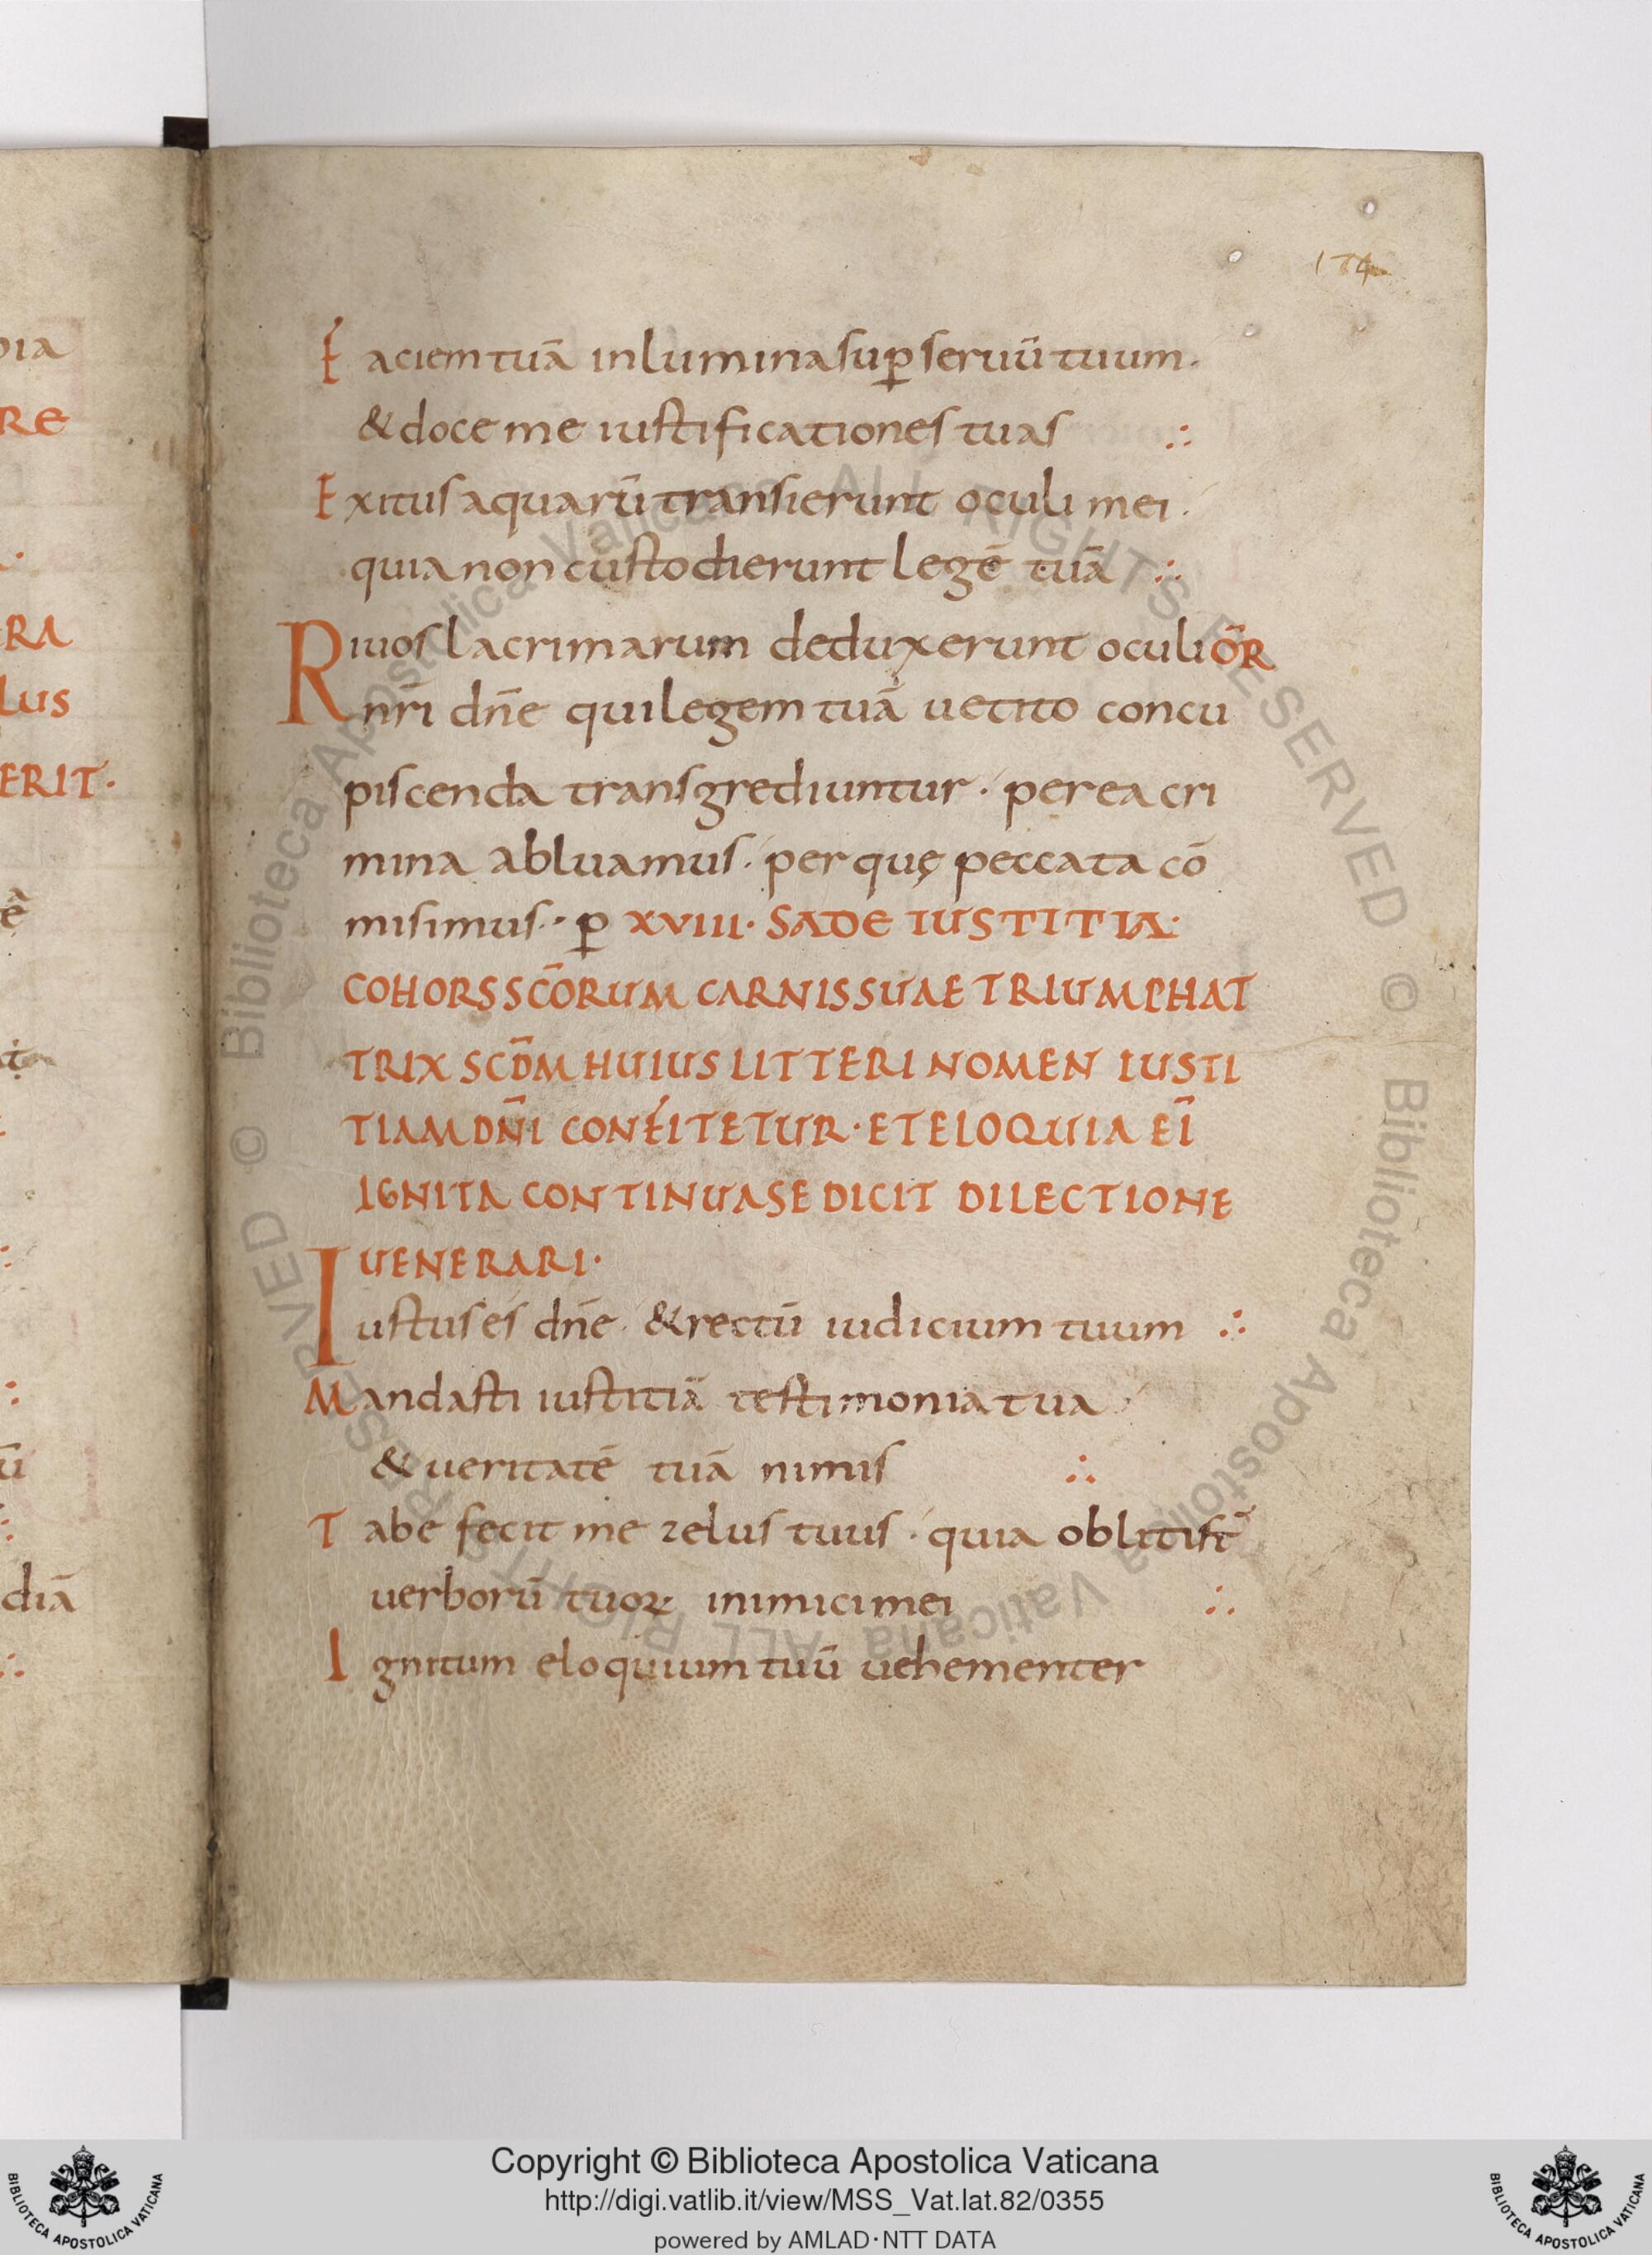 174
Faciem tuā inlumina suꝑ seruū tuum.
& doce me iustificationes tuas ∴
Exitus aquarū transierunt oculi mei.
quia non custodierunt legē tuā ∴
Riuos lacrimarum deduxerunt oculi ōR
nr̄i dn̄e qui legem tuā uetito concu
piscenda transgrediuntur. per ea cri
mina abluamus. per quę peccata cō
misimus. ꝑ XVIII. SADE IUSTITIA.
COHORS SC̄ORUM CARNIS SUAE TRIUMPHAT
TRIX SCD̄M HUIUS LITTERI NOMEN IUSTI
TIAM DN̄I CONFITETUR. ET ELOQUIA EĪ
IGNITA CONTINUA SE DICIT DILECTIONE
UENERARI.
Iustus es dn̄e & rectū iudicium tuum ∴
Mandasti iustitiā testimonia tua
& ueritatē tuā nimis ∴
Tabefecit me zelus tuus. quia obliti st̄
uerborū tuoꝝ inimici mei ∴
Ignitum eloquium tuū uehementer
oia
RE
RA
LUS
ERIT.
ē
ū
diā
∴
© Biblioteca Apostolica Vaticana ALL RIGHTS RESERVED
© Biblioteca Apostolica Vaticana ALL RIGHTS RESERVED
Copyright © Biblioteca Apostolica Vaticana
http://digi.vatlib.it/view/MSS_Vat.lat.82/0355
powered by AMLAD·NTT DATA
BIBLIOTECA APOSTOLICA VATICANA
BIBLIOTECA APOSTOLICA VATICANA